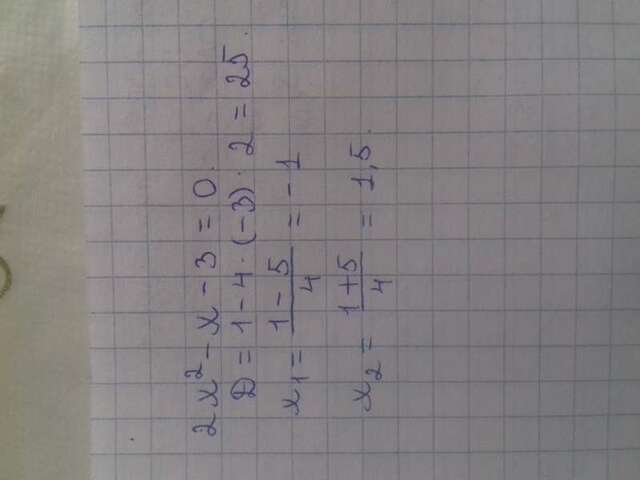 2x² - x - 3 = 0.
D = 1 - 4 · (-3) · 2 = 25.
x₁ = (1 - 5)/4 = -1
x₂ = (1 + 5)/4 = 1,5.